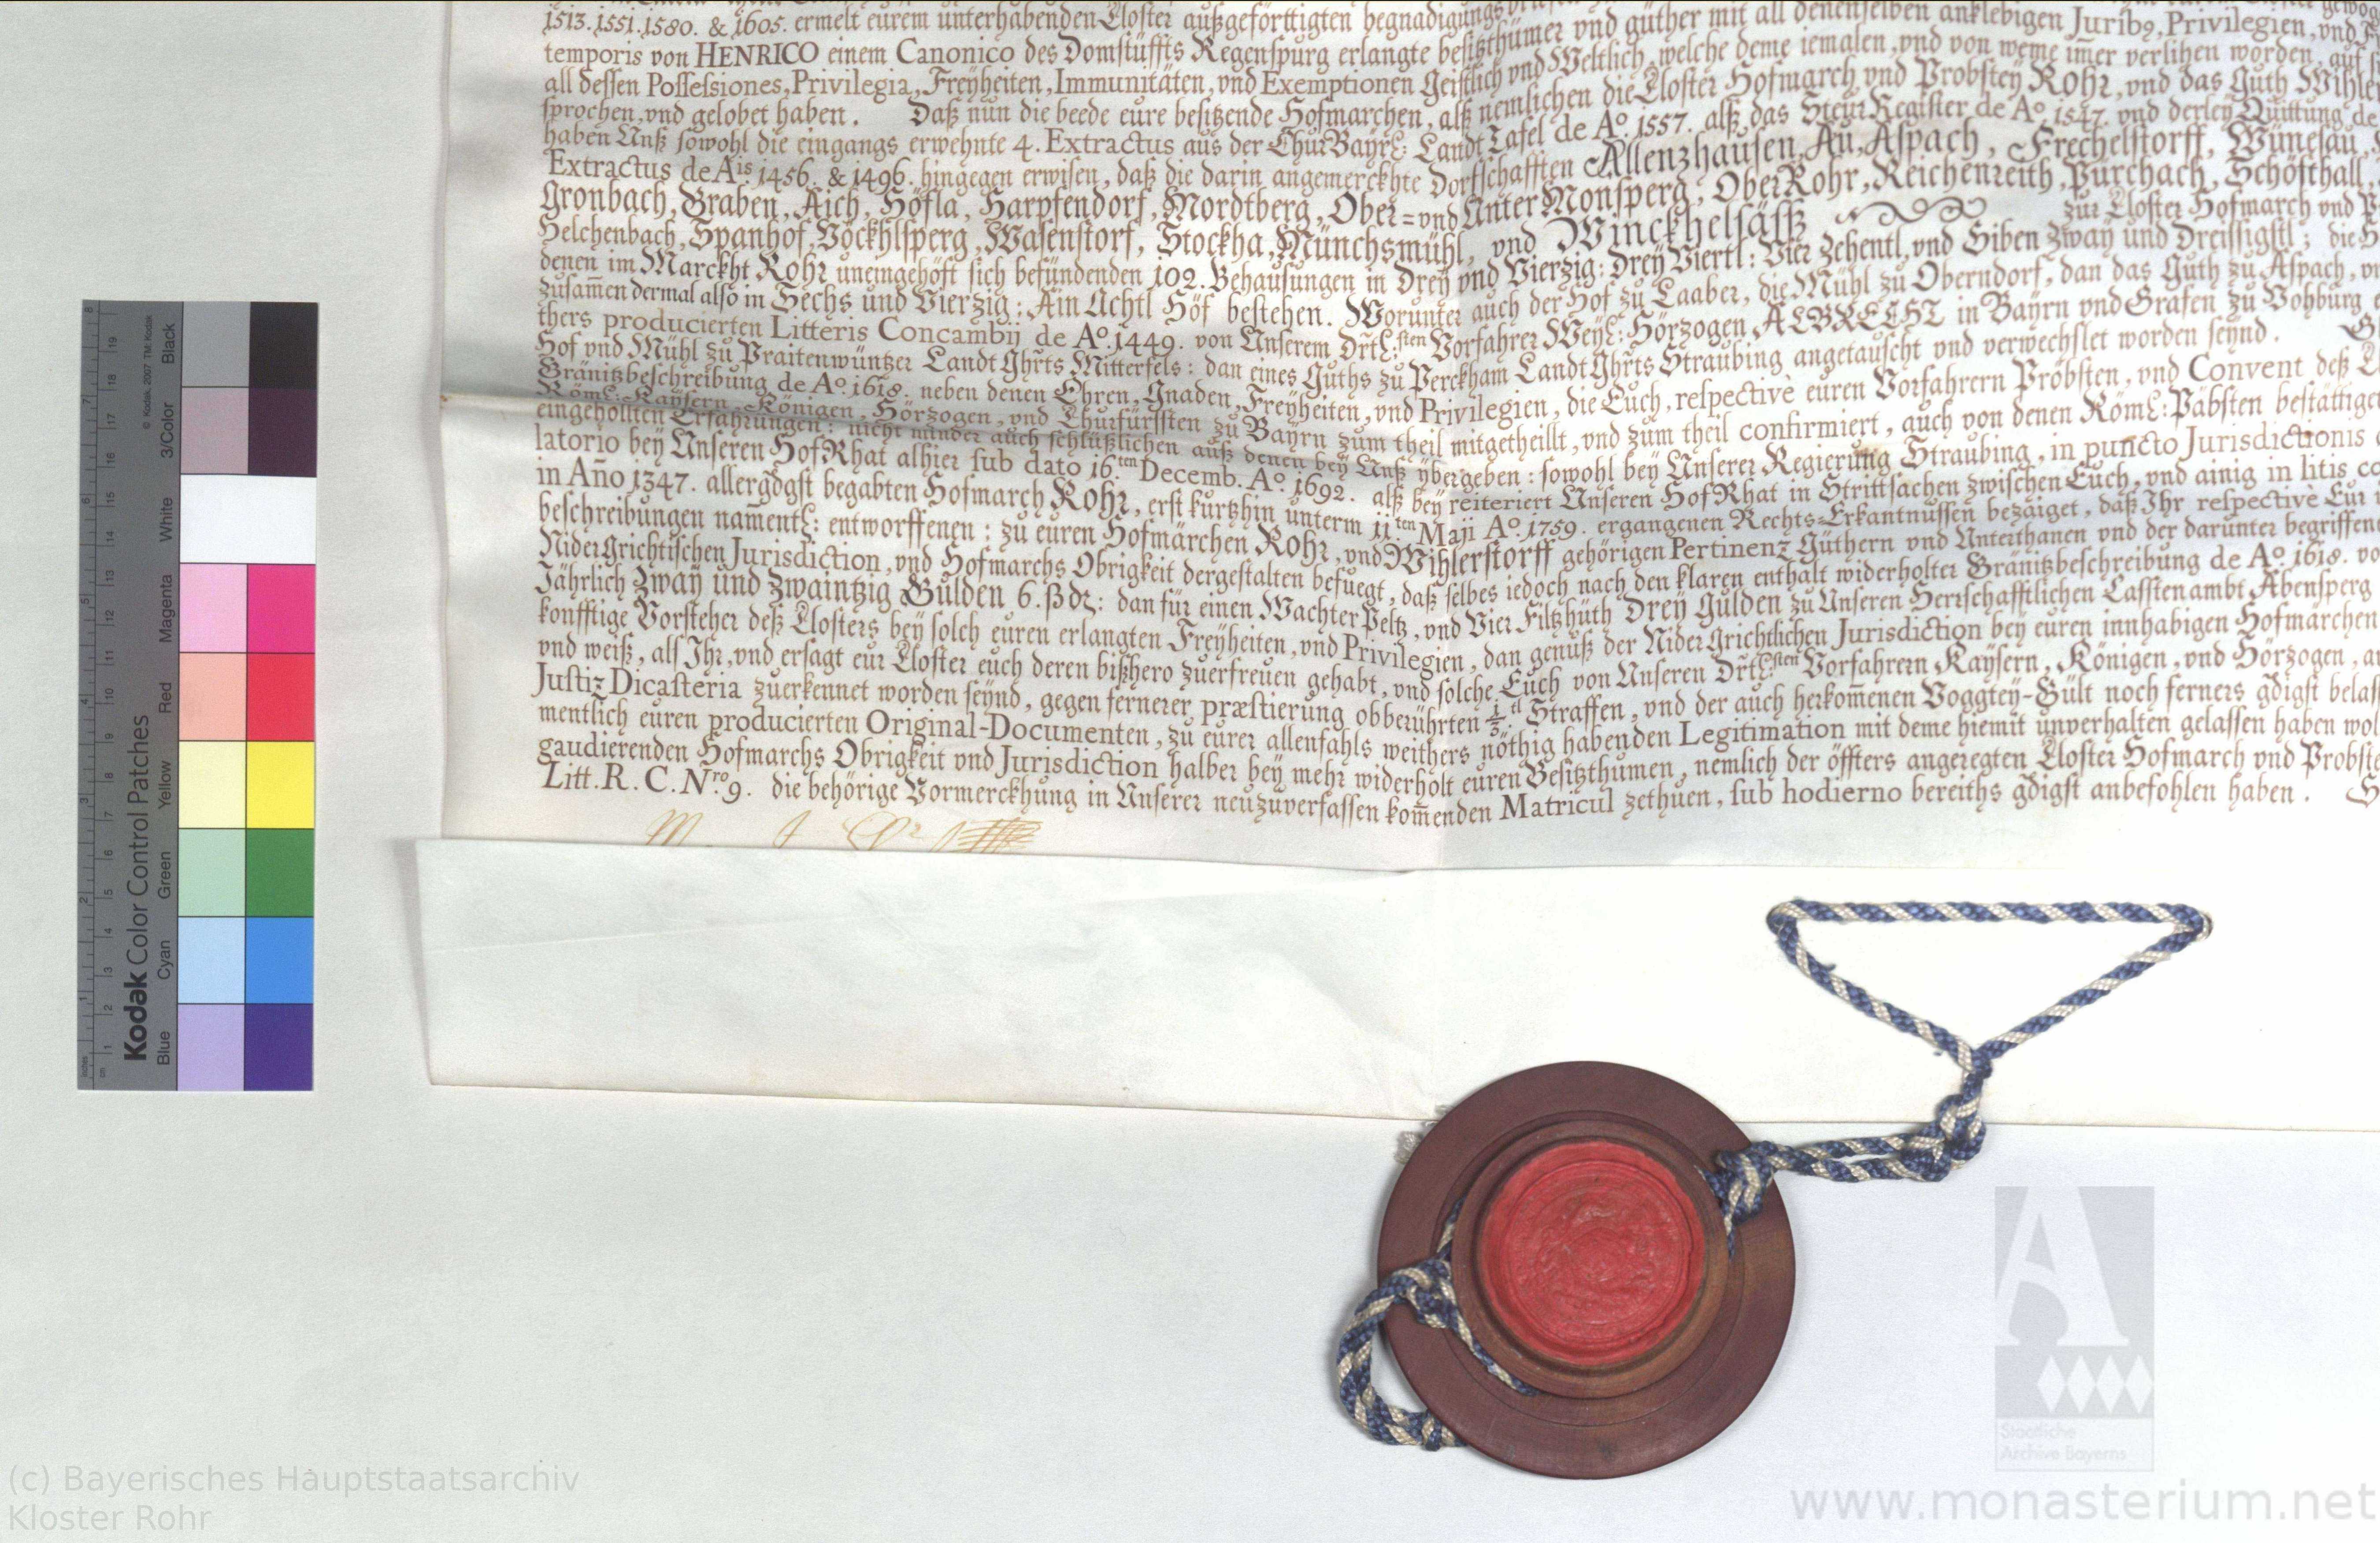 1513. 1551. 1580. & 1605. ermelt eurem unterhabenden Closter außgeförttigten begnadigungs
temporis von HENRICO einem Canonico des Domstüffts Regenspurg erlangte besitzthümer vnd güther mit all denenselben anklebigen Juribꝯ, Privilegien, vnd
all dessen Possessiones, Privilegia, Freÿheiten, Immunitäten, vnd Exemptionen Geistlich vnd Weltlich, welche deme iemalen, vnd von weme im̄er verlihen worden, auf
sprochen, vnd gelobet haben. Daß nun die beede eure besitzende Hofmarchen, alß nemlichen die Closter Hofmarch vnd Probsteÿ Rohr, vnd das Guth Wihler
haben Unß sowohl die eingangs erwehnte 4. Extractus aus der ChurBayrl: Landt Tafel de Aº. 1557. alß das Steyr Register de Aº. 1547. vnd derleÿ Quittung de
Extractus de Aⁱˢ 1456. & 1496. hingegen erwisen, daß die darin angemerckhte Dorfschafften Allenzhausen, Au, Aspach, Frechelstorff, Wünesau,
Gronbach, Graben, Aich, Höfla, Harpfendorf, Mordtberg, Ober= vnd Unter Monsperg, Ober Rohr, Reichenreith, Purchach, Schöfthall,
Helchenbach, Spanhof, Vöckhlsperg, Wasenstorf, Stockha, Münchsmühl, vnd Winckhelsäss zur Closter Hofmarch vnd P
denen im Marckht Rohr uneingehöft sich befündenden 102. Behausungen in Dreÿ vnd Vierzig: Dreÿ Viertl: Vier Zehentl, vnd Siben Zwaÿ und Dreissigstl; die H
zusam̄en dermal also in Sechs und Vierzig: Ain Achtl Höf bestehen. Worunter auch der Hof zu Laaber, die Mühl zu Oberndorf, dan das Guth zu Aspach, vn
thers producierten Litteris Concambij de Aº. 1449. von Unserem Drtl:sten Vorfahrer Weyl: Hörzogen ALBRECHT in Bayrn vnd Grafen zu Vohburg
Hof vnd Mühl zu Praitenwüntzer Landt Ghrts Mitterfels: dan eines Guths zu Perckham Landt Ghrts Straubing angetauscht vnd verwechslet worden seÿnd.
Gränitzbeschreibung de Aº. 1618. neben denen Ehren, Gnaden, Freÿheiten, vnd Privilegien, die Euch, respective euren Vorfahrern Pröbsten, vnd Convent deß
Röml: Kaÿsern, Königen, Hörzogen, vnd Churfürssten zu Bayrn zum theil mitgetheillt, vnd zum theil confirmiert, auch von denen Röml: Päbsten bestättiget
eingehollten Erfahrungen: nicht minder auch schlüßlichen auß denen bey Unß ybergeben: sowohl beÿ Unserer Regierung Straubing, in puncto Jurisdictionis
latorio beÿ Unseren HofRhat alhier sub dato 16.ten Decemb. Aº. 1692. alß beÿ reiteriert Unseren HofRhat in Strittsachen zwischen Euch, vnd ainig in litis co
in Año 1347. allergdgst begabten Hofmarch Rohr, erst kurtzhin unterm 11.ten Maji Aº. 1759. ergangenen Rechts-Erkantnussen bezaiget, daß Ihr respective Eur
beschreibungen namentl: entworffenen: zu euren Hofmärchen Rohr, vnd Wihlerstorff gehörigen Pertinenz Güthern vnd Unterthanen vnd der darunter begriffen
Nidergrichtischen Jurisdiction, vnd Hofmarchs Obrigkeit dergestalten befuegt, daß selbes iedoch nach den klaren enthalt widerholter Gränitzbeschreibung de Aº. 1618. vo
Jährlich Zwaÿ und Zwaintzig Gulden 6. ß dz: dan für einen Wachter Peltz, vnd Vier Filtzhüth Dreÿ Gulden zu Unseren Herrschafftlichen Casstenambt Abensperg
konfftige Vorsteher deß Closters beÿ solch euren erlangten Freÿheiten, vnd Privilegien, dan genuß der Nider Grichtlichen Jurisdiction beÿ euren innhabigen Hofmärchen
vnd weiß, alß Ihr, vnd ersagt eur Closter euch deren bißhero zuerfreuen gehabt, vnd solche Euch von Unseren Drtl:sten Vorfahrern Kaÿsern, Königen, vnd Hörzogen, a
Justiz Dicasteria zuerkennet worden seÿnd, gegen fernerer præstierung obberührten Straffen, vnd der auch herkom̄enen Voggteÿ-Gült noch ferners gdigst belas
mentlich euren producierten Original-Documenten, zu eurer allenfahls weithers nöthig habenden Legitimation mit deme hiemit unverhalten gelassen haben wol
gaudierenden Hofmarchs Obrigkeit vnd Jurisdiction halber beÿ mehr widerholt euren Besitzthumen, nemlich der öffters angeregten Closter Hofmarch vnd Probste
Litt. R. C. Nro. 9. die behörige Vormerckhung in Unserer neu zuverfassen kom̄enden Matricul zethuen, sub hodierno bereiths gdigst anbefohlen haben.
Kodak Color Control Patches
© Kodak, 2007 TM: Kodak
Blue Cyan Green Yellow Red Magenta White 3/Color Black
Staatliche
Archive Bayerns
(c) Bayerisches Hauptstaatsarchiv
Kloster Rohr
www.monasterium.net